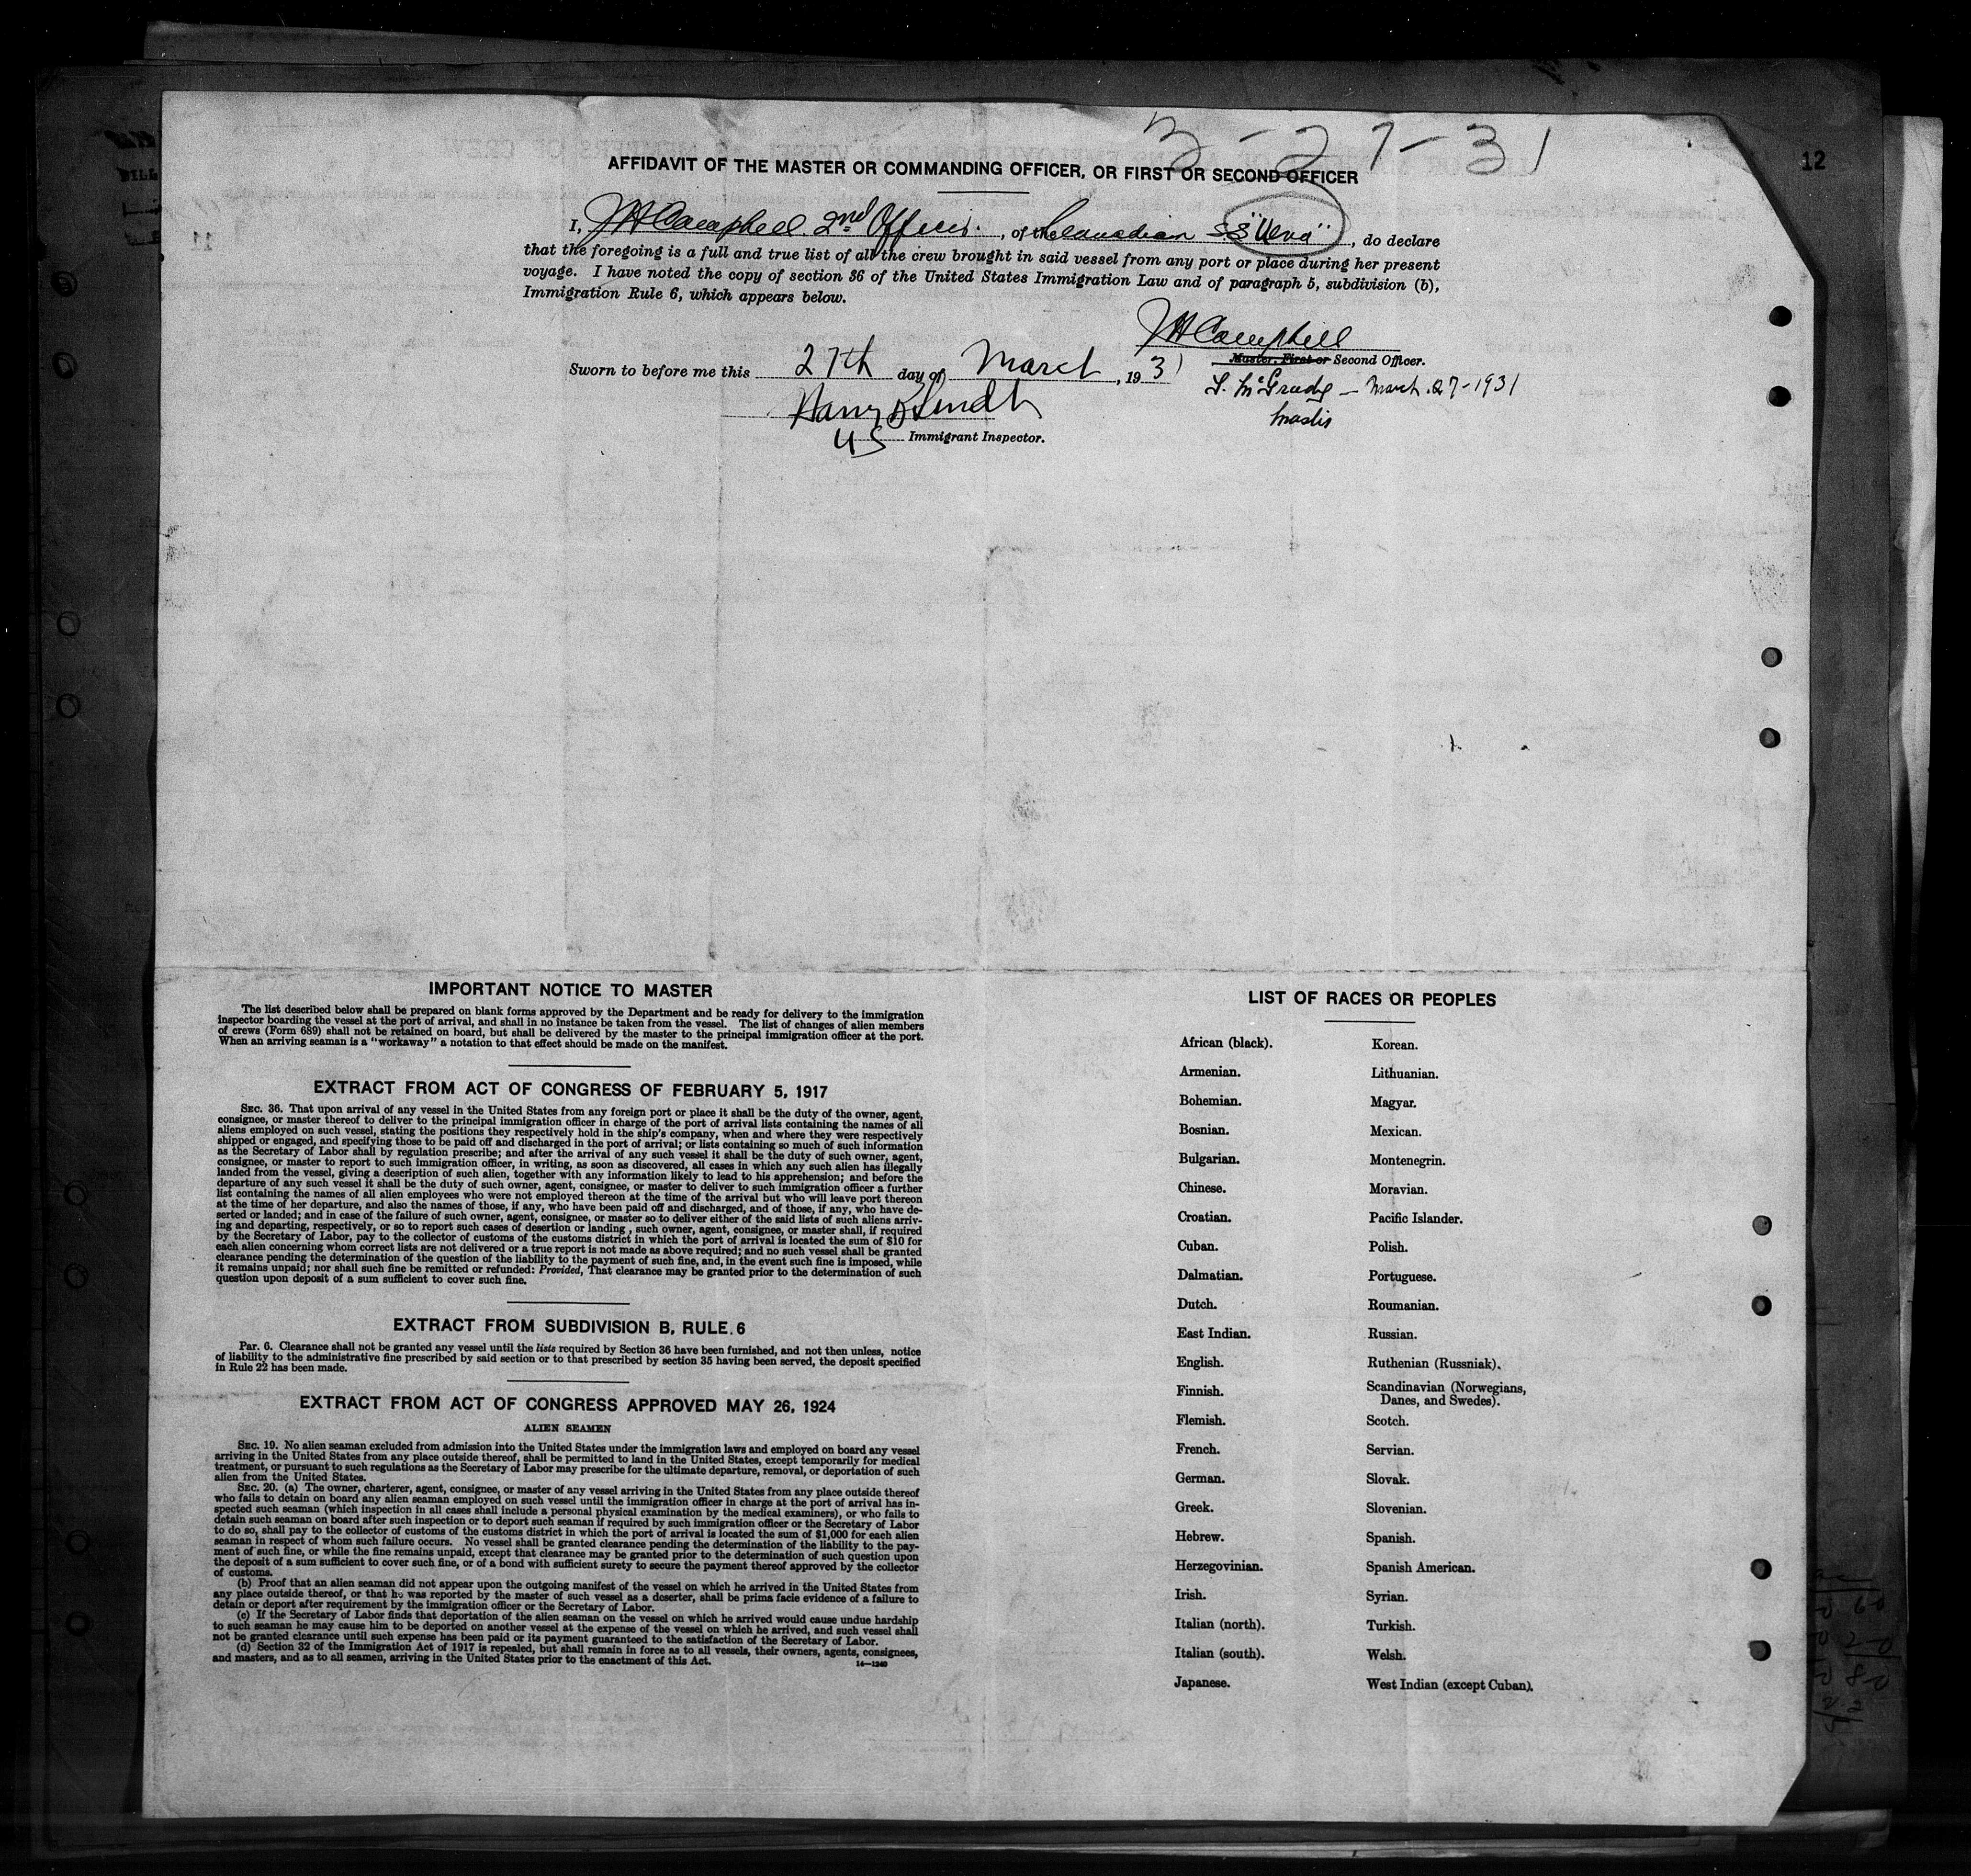 3-27-31
12
AFFIDAVIT OF THE MASTER OR COMMANDING OFFICER, OR FIRST OR SECOND OFFICER
I, JH Campbell 2nd Officer, of the Canadian SS "Ueva", do declare
that the foregoing is a full and true list of all the crew brought in said vessel from any port or place during her present
voyage. I have noted the copy of section 36 of the United States Immigration Law and of paragraph 5, subdivision (b),
Immigration Rule 6, which appears below.
JH Campbell
Master, First or Second Officer.
Sworn to before me this 27th day of March, 1931
McGrady - March 27-1931
Master
Harry
US Immigrant Inspector.
IMPORTANT NOTICE TO MASTER
The list described below shall be prepared on blank forms approved by the Department and be ready for delivery to the immigration
inspector boarding the vessel at the port of arrival, and shall in no instance be taken from the vessel. The list of changes of alien members
of crews (Form 689) shall not be retained on board, but shall be delivered by the master to the principal immigration officer at the port.
When an arriving seaman is a "workaway" a notation to that effect should be made on the manifest.
EXTRACT FROM ACT OF CONGRESS OF FEBRUARY 5, 1917
SEC. 36. That upon arrival of any vessel in the United States from any foreign port or place it shall be the duty of the owner, agent,
consignee, or master thereof to deliver to the principal immigration officer in charge of the port of arrival lists containing the names of all
aliens employed on such vessel, stating the positions they respectively hold in the ship's company, when and where they were respectively
shipped or engaged, and specifying those to be paid off and discharged in the port of arrival; or lists containing so much of such information
as the Secretary of Labor shall by regulation prescribe; and after the arrival of any such vessel it shall be the duty of such owner, agent,
consignee, or master to report to such immigration officer, in writing, as soon as discovered, all cases in which any such alien has illegally
landed from the vessel, giving a description of such alien, together with any information likely to lead to his apprehension; and before the
departure of any such vessel it shall be the duty of such owner, agent, consignee, or master to deliver to such immigration officer a further
list containing the names of all alien employees who were not employed thereon at the time of the arrival but who will leave port thereon
at the time of her departure, and also the names of those, if any, who have been paid off and discharged, and of those, if any, who have de-
serted or landed; and in case of the failure of such owner, agent, consignee, or master so to deliver either of the said lists of such aliens arriv-
ing and departing, respectively, or so to report such cases of desertion or landing, such owner, agent, consignee, or master shall, if required
by the Secretary of Labor, pay to the collector of customs of the customs district in which the port of arrival is located the sum of $10 for
each alien concerning whom correct lists are not delivered or a true report is not made as above required; and no such vessel shall be granted
clearance pending the determination of the question of the liability to the payment of such fine, and, in the event such fine is imposed, while
it remains unpaid; nor shall such fine be remitted or refunded: Provided, That clearance may be granted prior to the determination of such
question upon deposit of a sum sufficient to cover such fine.
EXTRACT FROM SUBDIVISION B, RULE 6
Par. 6. Clearance shall not be granted any vessel until the lists required by Section 36 have been furnished, and not then unless, notice
of liability to the administrative fine prescribed by said section or to that prescribed by section 35 having been served, the deposit specified
in Rule 22 has been made.
EXTRACT FROM ACT OF CONGRESS APPROVED MAY 26, 1924
ALIEN SEAMEN
SEC. 19. No alien seaman excluded from admission into the United States under the immigration laws and employed on board any vessel
arriving in the United States from any place outside thereof, shall be permitted to land in the United States, except temporarily for medical
treatment, or pursuant to such regulations as the Secretary of Labor may prescribe for the ultimate departure, removal, or deportation of such
alien from the United States.
SEC. 20. (a) The owner, charterer, agent, consignee, or master of any vessel arriving in the United States from any place outside thereof
who fails to detain on board any alien seaman employed on such vessel until the immigration officer in charge at the port of arrival has in-
spected such seaman (which inspection in all cases shall include a personal physical examination by the medical examiners), or who fails to
detain such seaman on board after such inspection or to deport such seaman if required by such immigration officer or the Secretary of Labor
to do so, shall pay to the collector of customs of the customs district in which the port of arrival is located the sum of $1,000 for each alien
seaman in respect of whom such failure occurs. No vessel shall be granted clearance pending the determination of the liability to the pay-
ment of such fine, or while the fine remains unpaid, except that clearance may be granted prior to the determination of such question upon
the deposit of a sum sufficient to cover such fine, or of a bond with sufficient surety to secure the payment thereof approved by the collector
of customs.
(b) Proof that an alien seaman did not appear upon the outgoing manifest of the vessel on which he arrived in the United States from
any place outside thereof, or that he was reported by the master of such vessel as a deserter, shall be prima facie evidence of a failure to
detain or deport after requirement by the immigration officer or the Secretary of Labor.
(c) If the Secretary of Labor finds that deportation of the alien seaman on the vessel on which he arrived would cause undue hardship
to such seaman he may cause him to be deported on another vessel at the expense of the vessel on which he arrived, and such vessel shall
not be granted clearance until such expense has been paid or its payment guaranteed to the satisfaction of the Secretary of Labor.
(d) Section 32 of the Immigration Act of 1917 is repealed, but shall remain in force as to all vessels, their owners, agents, consignees,
and masters, and as to all seamen, arriving in the United States prior to the enactment of this Act.
14-1240
LIST OF RACES OR PEOPLES
African (black).
Armenian.
Bohemian.
Bosnian.
Bulgarian.
Chinese.
Croatian.
Cuban.
Dalmatian.
Dutch.
East Indian.
English.
Finnish.
Flemish.
French.
German.
Greek.
Hebrew.
Herzegovinian.
Irish.
Italian (north).
Italian (south).
Japanese.
Korean.
Lithuanian.
Magyar.
Mexican.
Montenegrin.
Moravian.
Pacific Islander.
Polish.
Portuguese.
Roumanian.
Russian.
Ruthenian (Russniak).
Scandinavian (Norwegians,
Danes, and Swedes).
Scotch.
Servian.
Slovak.
Slovenian.
Spanish.
Spanish American.
Syrian.
Turkish.
Welsh.
West Indian (except Cuban).